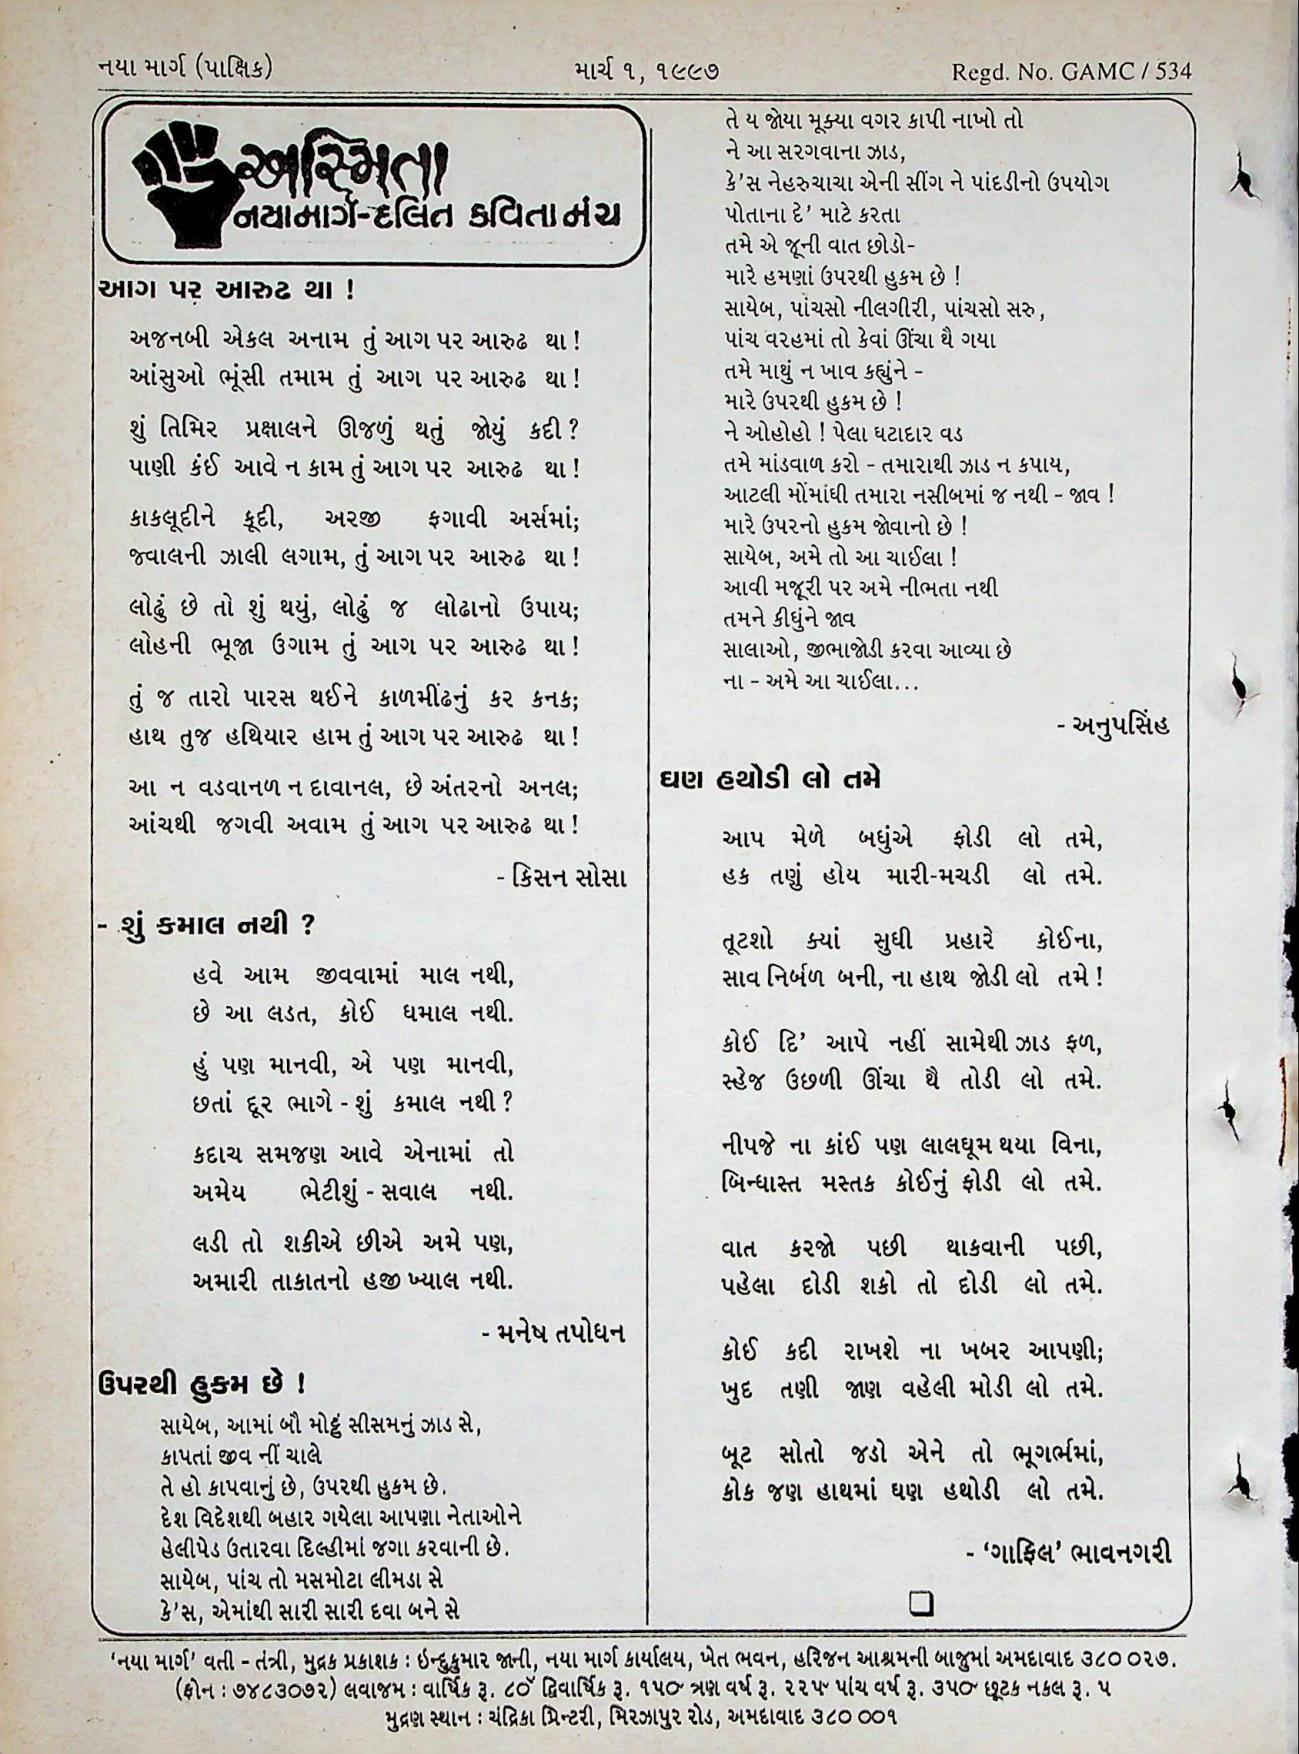 નયા માર્ગ (પાક્ષિક) માર્ચ ૧, ૧૯૯૭ Regd. No. GAMC / 534
અસ્મિતા
નયામાર્ગ-દલિત કવિતા મંચ
આગ પર આરુઢ થા !
અજનબી એકલ અનામ તું આગ પર આરુઢ થા !
આંસુઓ ભૂંસી તમામ તું આગ પર આરુઢ થા !
શું તિમિર પ્રક્ષાલને ઊજળું થતું જોયું કદી ?
પાણી કંઈ આવે ન કામ તું આગ પર આરુઢ થા !
કાકલૂદીને કૂદી, અરજી ફગાવી અર્સમાં;
જ્વાલની ઝાલી લગામ, તું આગ પર આરુઢ થા !
લોઢું છે તો શું થયું, લોઢું જ લોઢાનો ઉપાય;
લોહની ભૂજા ઉગામ તું આગ પર આરુઢ થા !
તું જ તારો પારસ થઈને કાળમીંઢનું કર કનક;
હાથ તુજ હથિયાર હામ તું આગ પર આરુઢ થા !
આ ન વડવાનળ ન દાવાનલ, છે અંતરનો અનલ;
આંચથી જગવી અવામ તું આગ પર આરુઢ થા !
- કિસન સોસા
- શું કમાલ નથી ?
હવે આમ જીવવામાં માલ નથી,
છે આ લડત, કોઈ ધમાલ નથી.
હું પણ માનવી, એ પણ માનવી,
છતાં દૂર ભાગે - શું કમાલ નથી ?
કદાચ સમજણ આવે એનામાં તો
અમેય ભેટીશું - સવાલ નથી.
લડી તો શકીએ છીએ અમે પણ,
અમારી તાકાતનો હજી ખ્યાલ નથી.
- મનેષ તપોધન
ઉપરથી હુકમ છે !
સાયેબ, આમાં બૌ મોટ્ટું સીસમનું ઝાડ સે,
કાપતાં જીવ નીં ચાલે
તે હો કાપવાનું છે, ઉપરથી હુકમ છે.
દેશ વિદેશથી બહાર ગયેલા આપણા નેતાઓને
હેલીપેડ ઉતારવા દિલ્હીમાં જગા કરવાની છે.
સાયેબ, પાંચ તો મસમોટા લીમડા સે
કે'સ, એમાંથી સારી સારી દવા બને સે
તે ય જોયા મૂક્યા વગર કાપી નાખો તો
ને આ સરગવાના ઝાડ,
કે'સ નેહરુચાચા એની સીંગ ને પાંદડીનો ઉપયોગ
પોતાના દે' માટે કરતા
તમે એ જૂની વાત છોડો-
મારે હમણાં ઉપરથી હુકમ છે !
સાયેબ, પાંચસો નીલગીરી, પાંચસો સરુ,
પાંચ વરહમાં તો કેવાં ઊંચા થૈ ગયા
તમે માથું ન ખાવ કહ્યુંને -
મારે ઉપરથી હુકમ છે !
ને ઓહોહો ! પેલા ઘટાદાર વડ
તમે માંડવાળ કરો - તમારાથી ઝાડ ન કપાય,
આટલી મોંમાંઘી તમારા નસીબમાં જ નથી - જાવ !
મારે ઉપરનો હુકમ જોવાનો છે !
સાયેબ, અમે તો આ ચાઈલા !
આવી મજૂરી પર અમે નીભતા નથી
તમને કીધુંને જાવ
સાલાઓ, જીભાજોડી કરવા આવ્યા છે
ના - અમે આ ચાઈલા...
- અનુપસિંહ
ઘણ હથોડી લો તમે
આપ મેળે બધુંએ ફોડી લો તમે,
હક તણું હોય મારી-મચડી લો તમે.
તૂટશો ક્યાં સુધી પ્રહારે કોઈના,
સાવ નિર્બળ બની, ના હાથ જોડી લો તમે !
કોઈ દિ' આપે નહીં સામેથી ઝાડ ફળ,
સ્હેજ ઉછળી ઊંચા થૈ તોડી લો તમે.
નીપજે ના કાંઈ પણ લાલઘૂમ થયા વિના,
બિન્ધાસ્ત મસ્તક કોઈનું ફોડી લો તમે.
વાત કરજો પછી થાકવાની પછી,
પહેલા દોડી શકો તો દોડી લો તમે.
કોઈ કદી રાખશે ના ખબર આપણી;
ખુદ તણી જાણ વહેલી મોડી લો તમે.
બૂટ સોતો જડો એને તો ભૂગર્ભમાં,
કોક જણ હાથમાં ઘણ હથોડી લો તમે.
- ‘ગાફિલ’ ભાવનગરી
‘નયા માર્ગ’ વતી - તંત્રી, મુદ્રક પ્રકાશક : ઇન્દુકુમાર જાની, નયા માર્ગ કાર્યાલય, ખેત ભવન, હરિજન આશ્રમની બાજુમાં અમદાવાદ ૩૮૦ ૦૨૭.
(ફોન : ૭૪૮૩૦૭૨) લવાજમ : વાર્ષિક રૂ. ૮૦ દ્વિવાર્ષિક રૂ. ૧૫૦ ત્રણ વર્ષ રૂ. ૨૨૫ પાંચ વર્ષ રૂ. ૩૫૦ છૂટક નકલ રૂ. ૫
મુદ્રણ સ્થાન : ચંદ્રિકા પ્રિન્ટરી, મિરઝાપુર રોડ, અમદાવાદ ૩૮૦ ૦૦૧